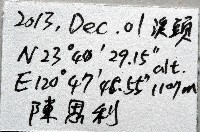 2013, Dec. 01 溪頭
N 23° 40' 29.15"
E 120° 47' 46.55" alt. 1107m
陳恩利